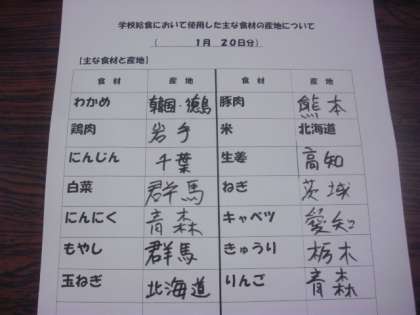 学校給食において使用した主な食材の産地について
( 1月 20日分)
[主な食材と産地]
食材 産地 食材 産地
わかめ 韓国・徳島 豚肉 熊本
鶏肉 岩手 米 北海道
にんじん 千葉 生姜 高知
白菜 群馬 ねぎ 茨城
にんにく 青森 キャベツ 愛知
もやし 群馬 きゅうり 栃木
玉ねぎ 北海道 りんご 青森